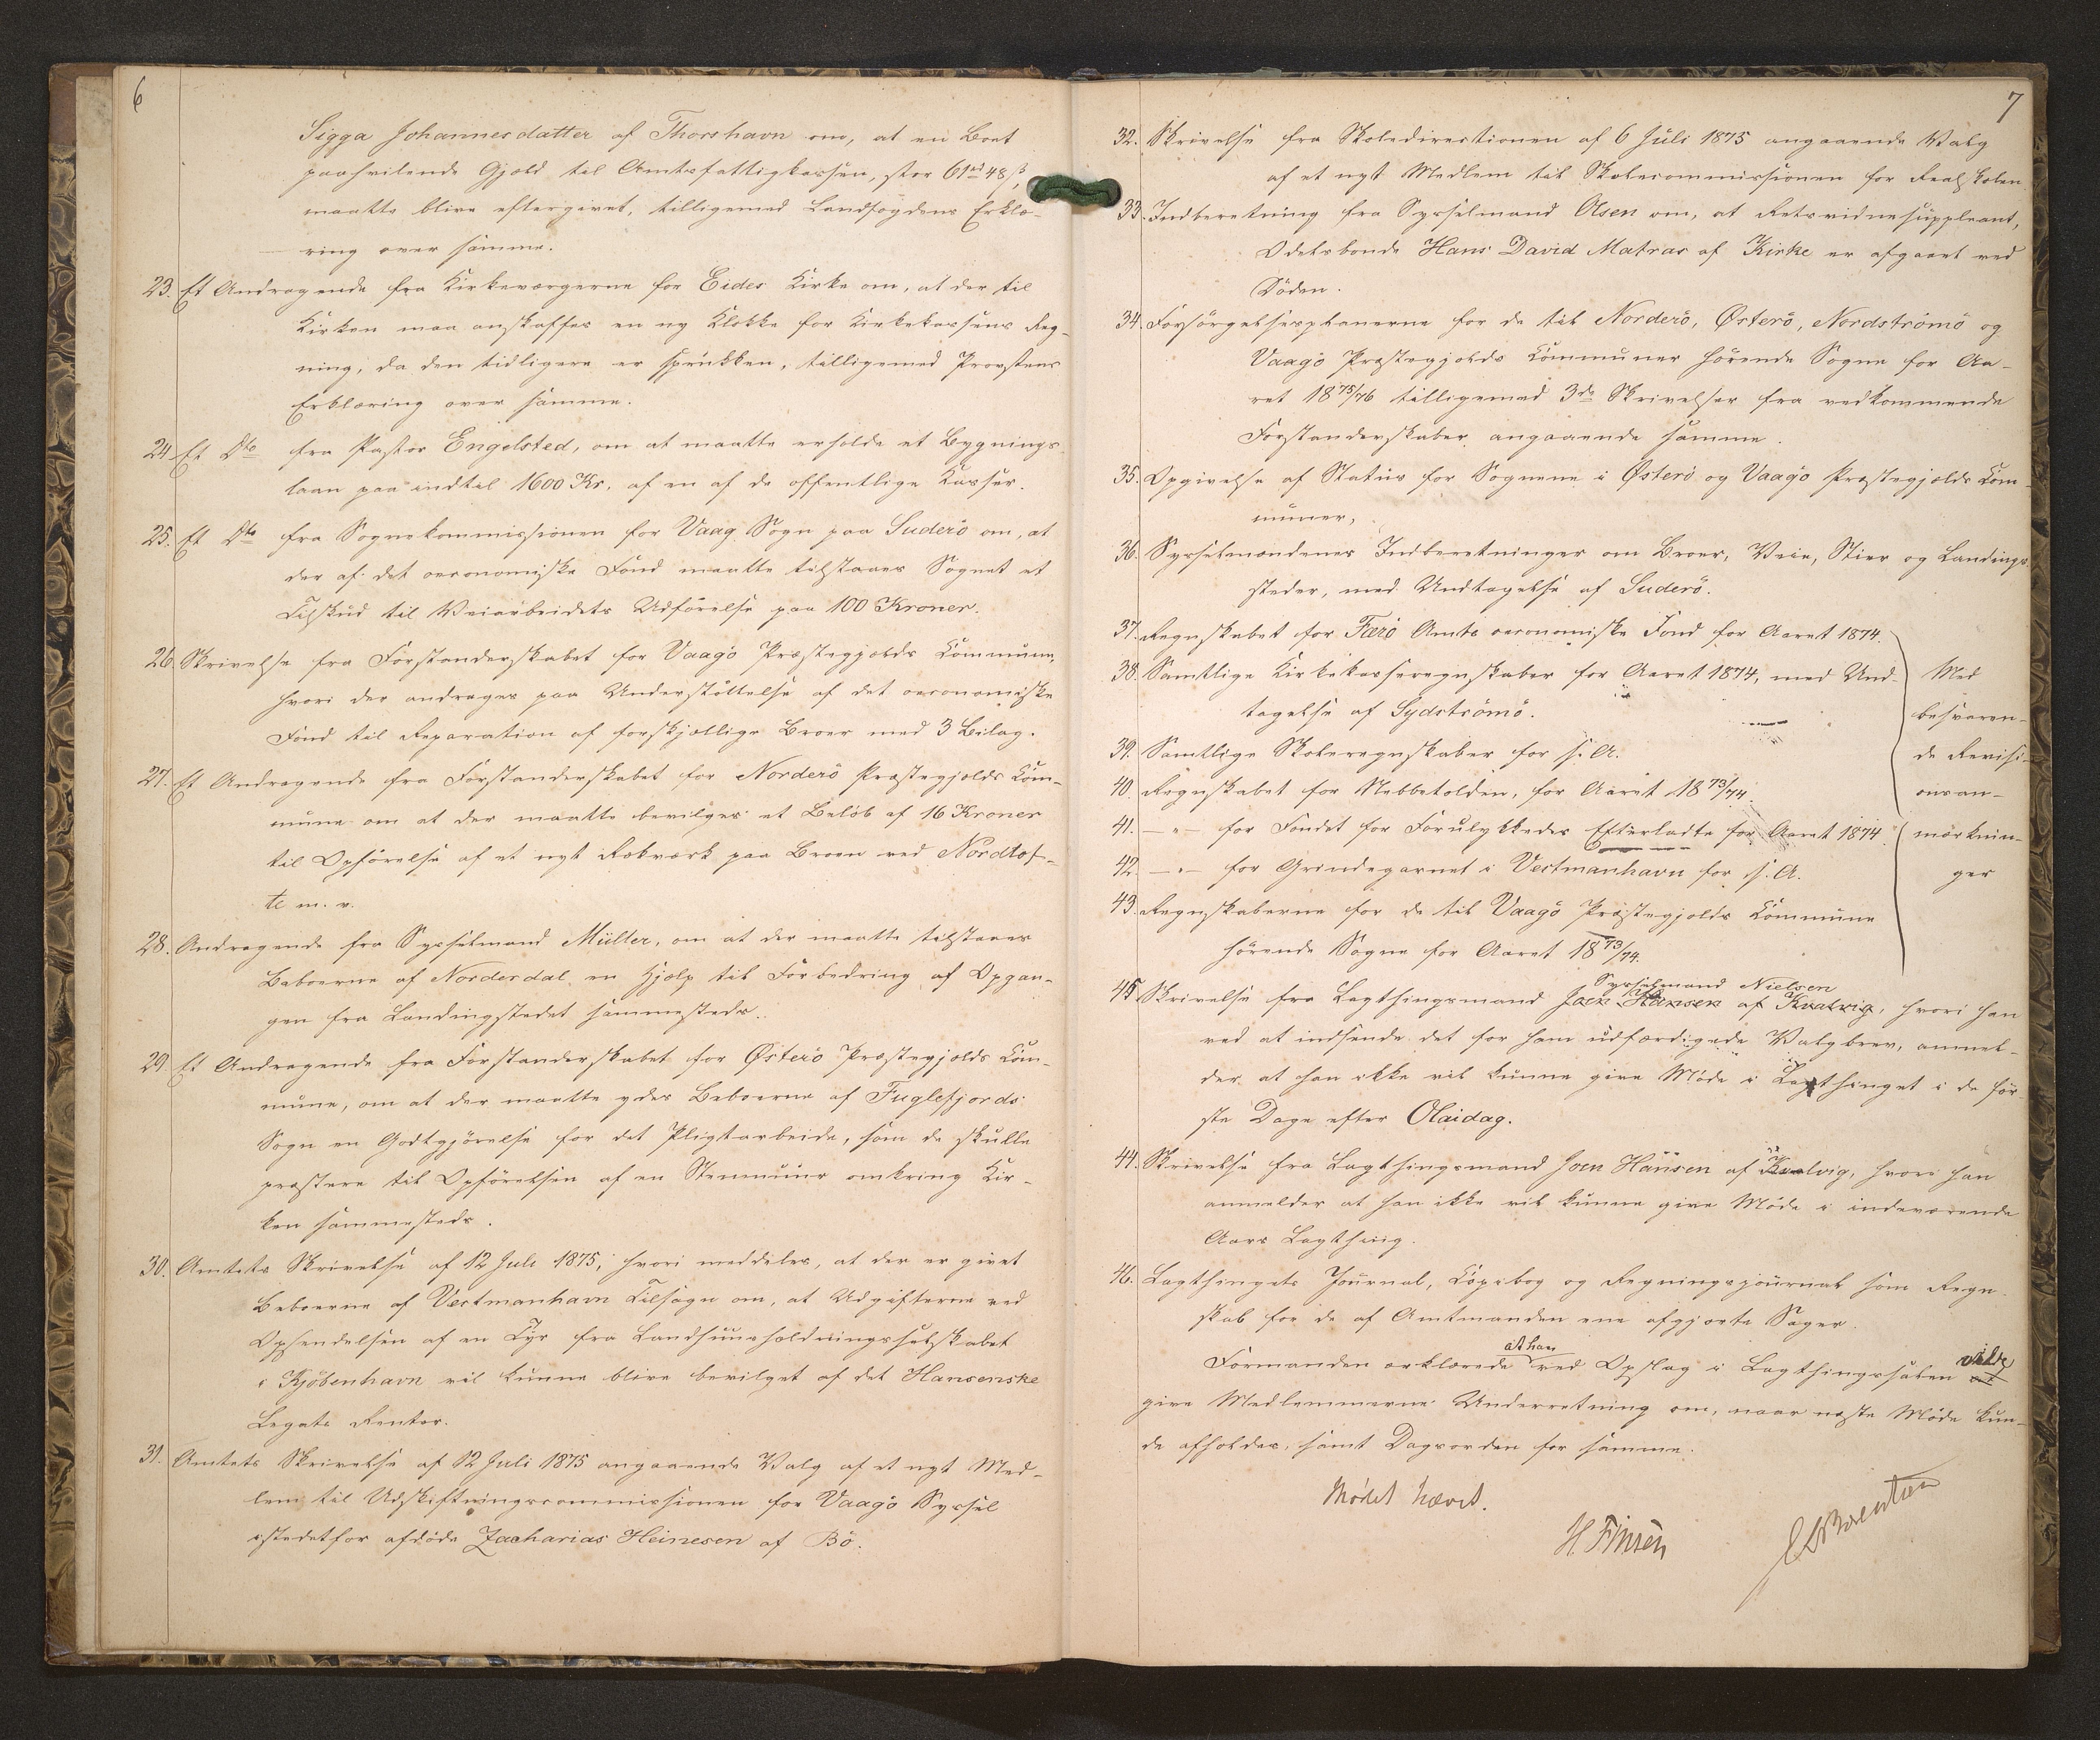 6
Sigga Johannesdatter af Thorshavn om, at en Boet
paahvilende Gjæld til Amtsfattigkassen, stor 61 rd 48 ß,
maatte blive eftergivet, tilligemed Landfogdens Erklæ-
ring over samme.
23. Et Andragende fra Kirkeværgerne for Eides Kirke om, at der til
Kirken maa anskaffes en ny Klokke for Kirkekassens Reg-
ning, da den tidligere er sprukken, tilligemed Provstens
Erklæring over samme.
24. Et Dto fra Pastor Engelsted, om at maatte erholde et Bygnings
laan paa indtil 1600 Kr. af en af de offentlige Kasser.
25. Et Dto fra Sognekommissionen for Vaag Sogn paa Suderö om, at
der af det oeconomiske Fond maatte tilstaaes Sognet et
Tilskud til Veiarbeidets Udförelse paa 100 Kroner.
26. Skrivelse fra Forstanderskabet for Vaagö Præstegjælds Commune,
hvori der andrages paa Understöttelse af det oeconomiske
Fond til Reparation af forskjellige Broer med 3 Bilag.
27. Et Andragende fra Forstanderskabet for Norderö Præstegjælds Com-
mune om at der maatte bevilges et Belöb af 16 Kroner
til Opförelse af et nyt Rækværk paa Broen ved Nordtof-
te m. v.
28. Andragende fra Sysselmand Müller, om at der maatte tilstaaes
Beboerne af Norderdal en Hjælp til Forbedring af Opgan-
gen fra Landingstedet sammesteds.
29. Et Andragende fra Forstanderskabet for Østerö Præstegjælds Com-
mune, om at der maatte ydes Beboerne af Fuglefjords
Sogn en Godtgjörelse for det Pligtarbeide, som de skulle
præstere til Opförelsen af en Steenmuur omkring Kir-
ken sammesteds.
30. Amtets Skrivelse af 12 Juli 1875, hvori meddeles, at der er givet
Beboerne af Vestmanhavn Tilsagn om, at Udgifterne ved
Opsendelsen af en Tyr fra Landhuusholdningsselskabet
i Kjöbenhavn vil kunne blive bevilget af det Hansenske
Legats Renter.
31. Amtets Skrivelse af 12 Juli 1875 angaaende Valg af et nyt Med-
lem til Udskiftningscommissionen for Vaagö Syssel
istedetfor afdöde Zacharias Heinesen af Bö.
7
32. Skrivelse fra Skoledirectionen af 6 Juli 1875 angaaende Valg
af et nyt Medlem til Skolecommissionen for Realskolen
33. Indberetning fra Sysselmand Olsen om, at Retsvidnesuppleant,
Odelsbonde Hans David Matras af Kirke er afgaaet ved
Döden.
34. Forsörgelsesplanerne for de til Norderö, Østerö, Nordströmö og
Vaagö Præstegjælds Communer hörende Sogne for Aa-
ret 1875/76 tilligemed 3de Skrivelser fra vedkommende
Forstanderskaber angaaende samme.
35. Opgivelse af Status for Sognene i Østerö og Vaagö Præstegjælds Com-
muner,
36. Sysselmændenes Indberetninger om Broer, Veie, Stier og Landings-
steder, med Undtagelse af Suderö.
37. Regnskabet for Færö Amts oeconomiske Fond for Aaret 1874.
38. Samtlige Kirkekasseregnskaber for Aaret 1874, med Und-
tagelse af Sydströmö.
39. Samtlige Skoleregnskaber for s. A.
40. Regnskabet for Nebbetolden, for Aaret 1873/74.
41. —"— for Fondet for Forulykkedes Efterladte for Aaret 1874.
42. —"— for Grindegarnet i Vestmanhavn for s. A.
43. Regnskaberne for de til Vaagö Præstegjælds Commune
hörende Sogne for Aaret 1873/74.
Med
besvaren-
de Revisi-
onsan-
mærknin-
ger
Sysselmand Nielsen
45. Skrivelse fra Lagthingsmand Joen Hansen af Kvalvig, hvori han
ved at indsende det for ham udfærdigede Valgbrev, anmel-
der at han ikke vil kunne give Möde i Lagthinget i de för-
ste Dage efter Olaidag.
44. Skrivelse fra Lagthingsmand Joen Hansen af Kvalvig, hvori han
anmelder at han ikke vil kunne give Möde i indeværende
Aars Lagthing.
46. Lagthingets Journal, Copibog og Regningsjournal som Regn-
skab for de af Amtmanden ene afgjorte Sager.
at han
Formanden erklærede ved Opslag i Lagthingssalen vilde
give Medlemmerne Underretning om, naar næste Möde kun-
de afholdes, samt Dagsorden for samme.
Mödet hævet.
H. Finsen